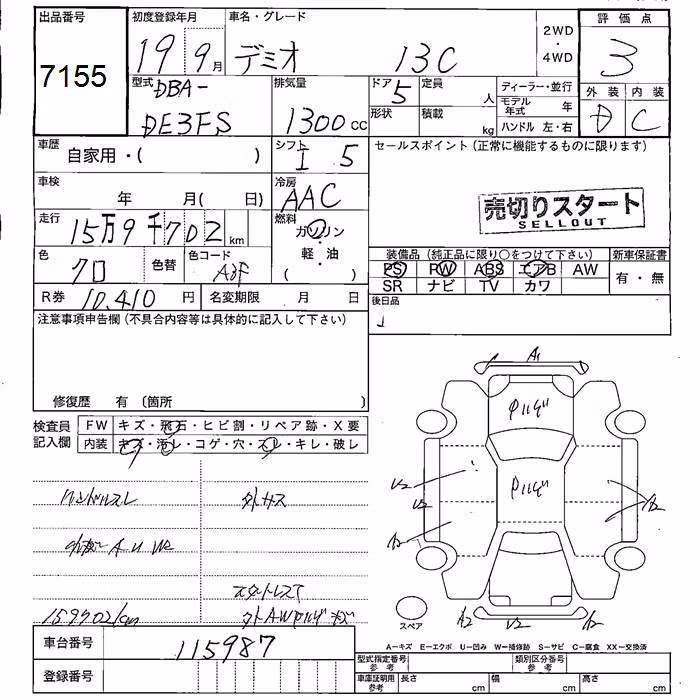 出品番号
7155
初度登録年月
19 9月
車名・グレード
デミオ 13C
2WD
・
4WD
評価点
3
型式
DBA-
DE3FS
排気量
1300cc
ドア
5
定員
人
形状
積載
kg
ディーラー・並行
モデル年式 年
ハンドル 左・右
外装 内装
D C
車歴
自家用・( )
シフト
I 5
セールスポイント(正常に機能するものに限ります)
車検
年 月( 日)
冷房
AAC
売切りスタート
SELLOUT
走行
15万9千702km
燃料
ガソリン
・
軽・油
( )
色
クロ
色替
色コード
A3F
装備品(純正品に限り○をつけて下さい)
PS PW ABS エアB AW
SR ナビ TV カワ
新車保証書
有・無
R券
10,410円
名変期限 月 日
後日品
注意事項申告欄(不具合内容等は具体的に記入して下さい)
修復歴 有 (箇所 )
検査員記入欄
FW キズ・飛石・ヒビ割・リペア跡・X要
内装 キズ・汚レ・コゲ・穴・スレ・キレ・破レ
ハンドルスレ
スタートレスT
159702km
A1
U2
A2
U2
スペア
A2
A…キズ E…エクボ U…凹み W…補修跡 S…サビ C…腐食 XX…交換済
車台番号
115987
登録番号
型式指定番号
参考
類別区分番号
参考
車庫証明用
参考
長さ cm
幅 cm
高さ cm